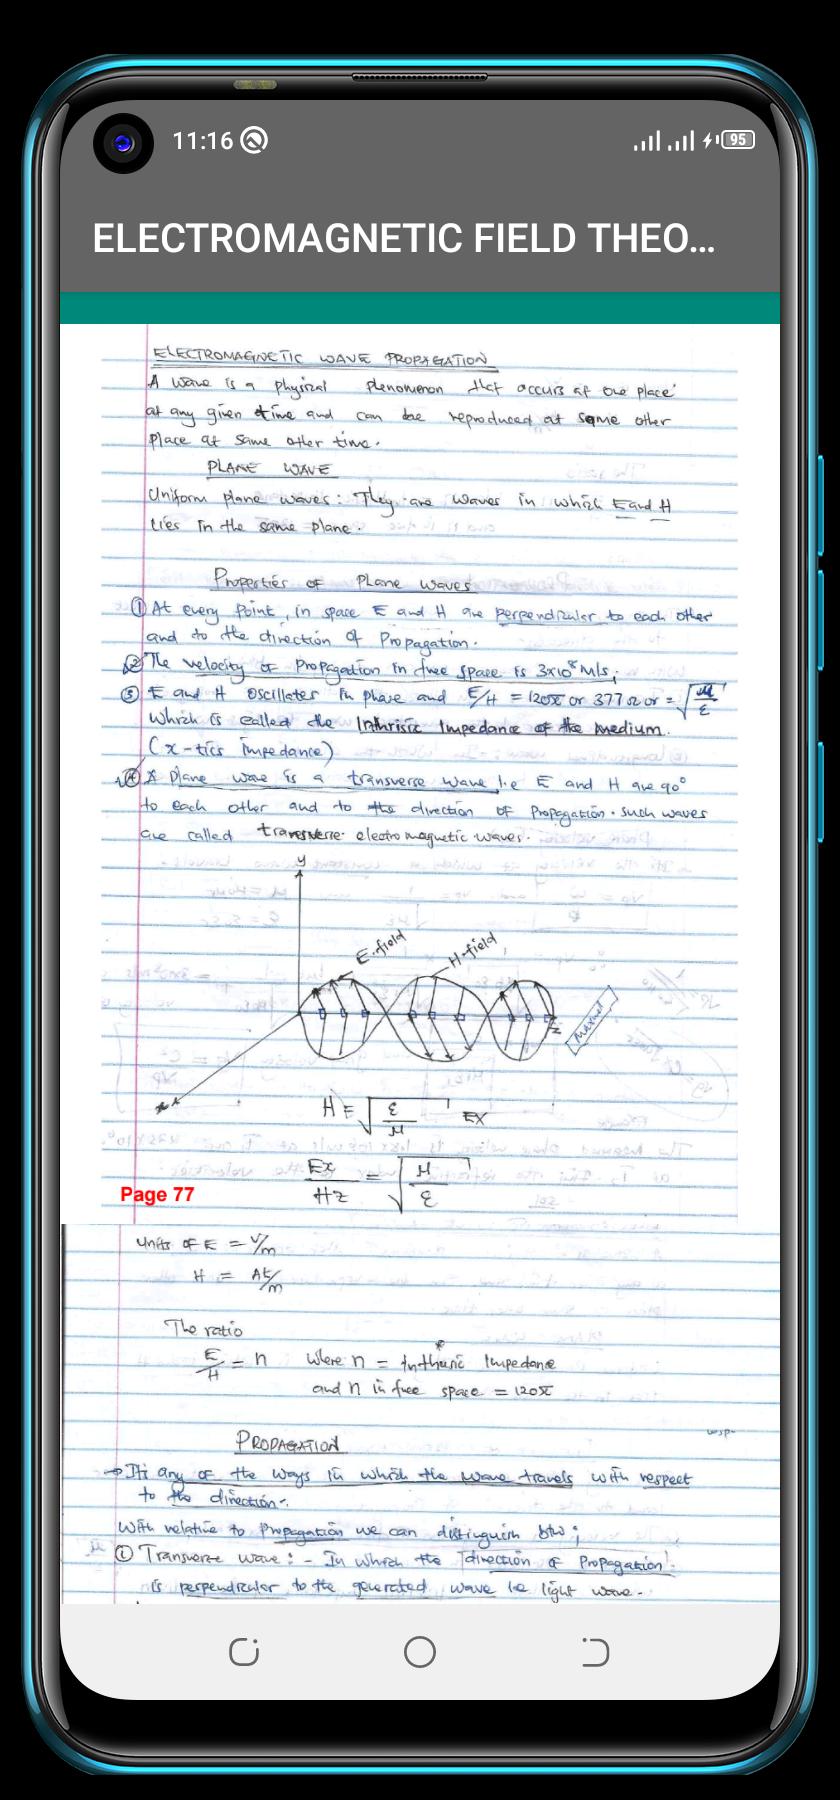 11:16
95
ELECTROMAGNETIC FIELD THEO...
ELECTROMAGNETIC WAVE PROPAGATION
A wave is a physical phenomenon that occurs at one place
at any given time and can be reproduced at some other
place at some other time.
PLANE WAVE
Uniform plane waves: They are waves in which E and H
lies in the same plane.
Properties of Plane waves
① At every point, in space E and H are perpendicular to each other
and to the direction of Propagation.
② The velocity of Propagation in free space is 3x10⁸ m/s.
③ E and H oscillates in phase and E/H = 120π or 377Ω or = √(μ/ε)
which is called the Intrinsic Impedance of the medium.
(x-tics impedance)
④ A plane wave is a transverse wave i.e E and H are 90°
to each other and to the direction of Propagation. such waves
are called transverse electromagnetic waves.
y
E-field
H-field
z
x
H = √(ε/μ) Ex
Ex/Hz = √(μ/ε)
Page 77
Units of E = V/m
H = At/m
The ratio
E/H = n where n = Intrinsic Impedance
and n in free space = 120π
PROPAGATION
→ Its any of the ways in which the wave travels with respect
to the direction.
With relative to Propagation we can distinguish btw;
① Transverse wave: - In which the direction of Propagation
is perpendicular to the generated wave ie light wave.